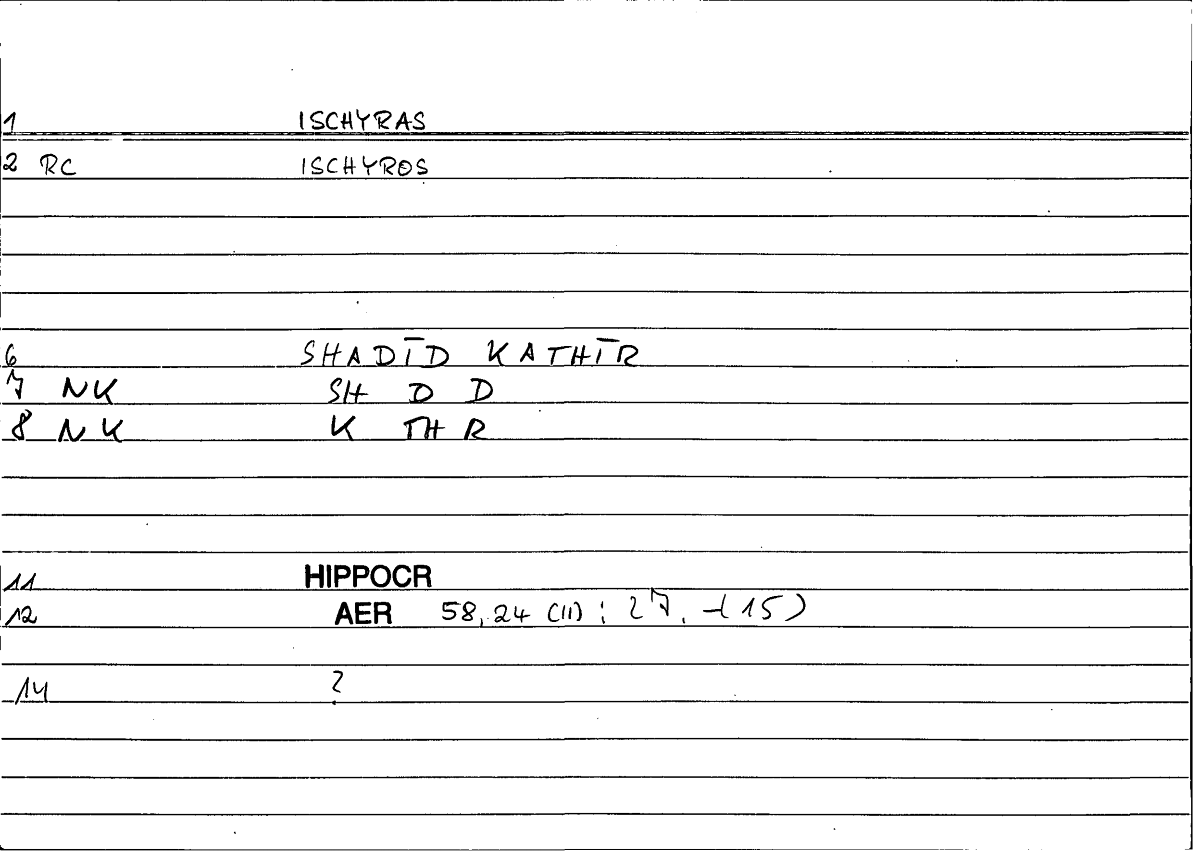 1 ISCHYRAS
2 RC ISCHYROS
6 SHADĪD KATHĪR
7 NK SH D D
8 NK K TH R
11 HIPPOCR
12 AER 58,24 (11) ; 27, -(15)
14 ?